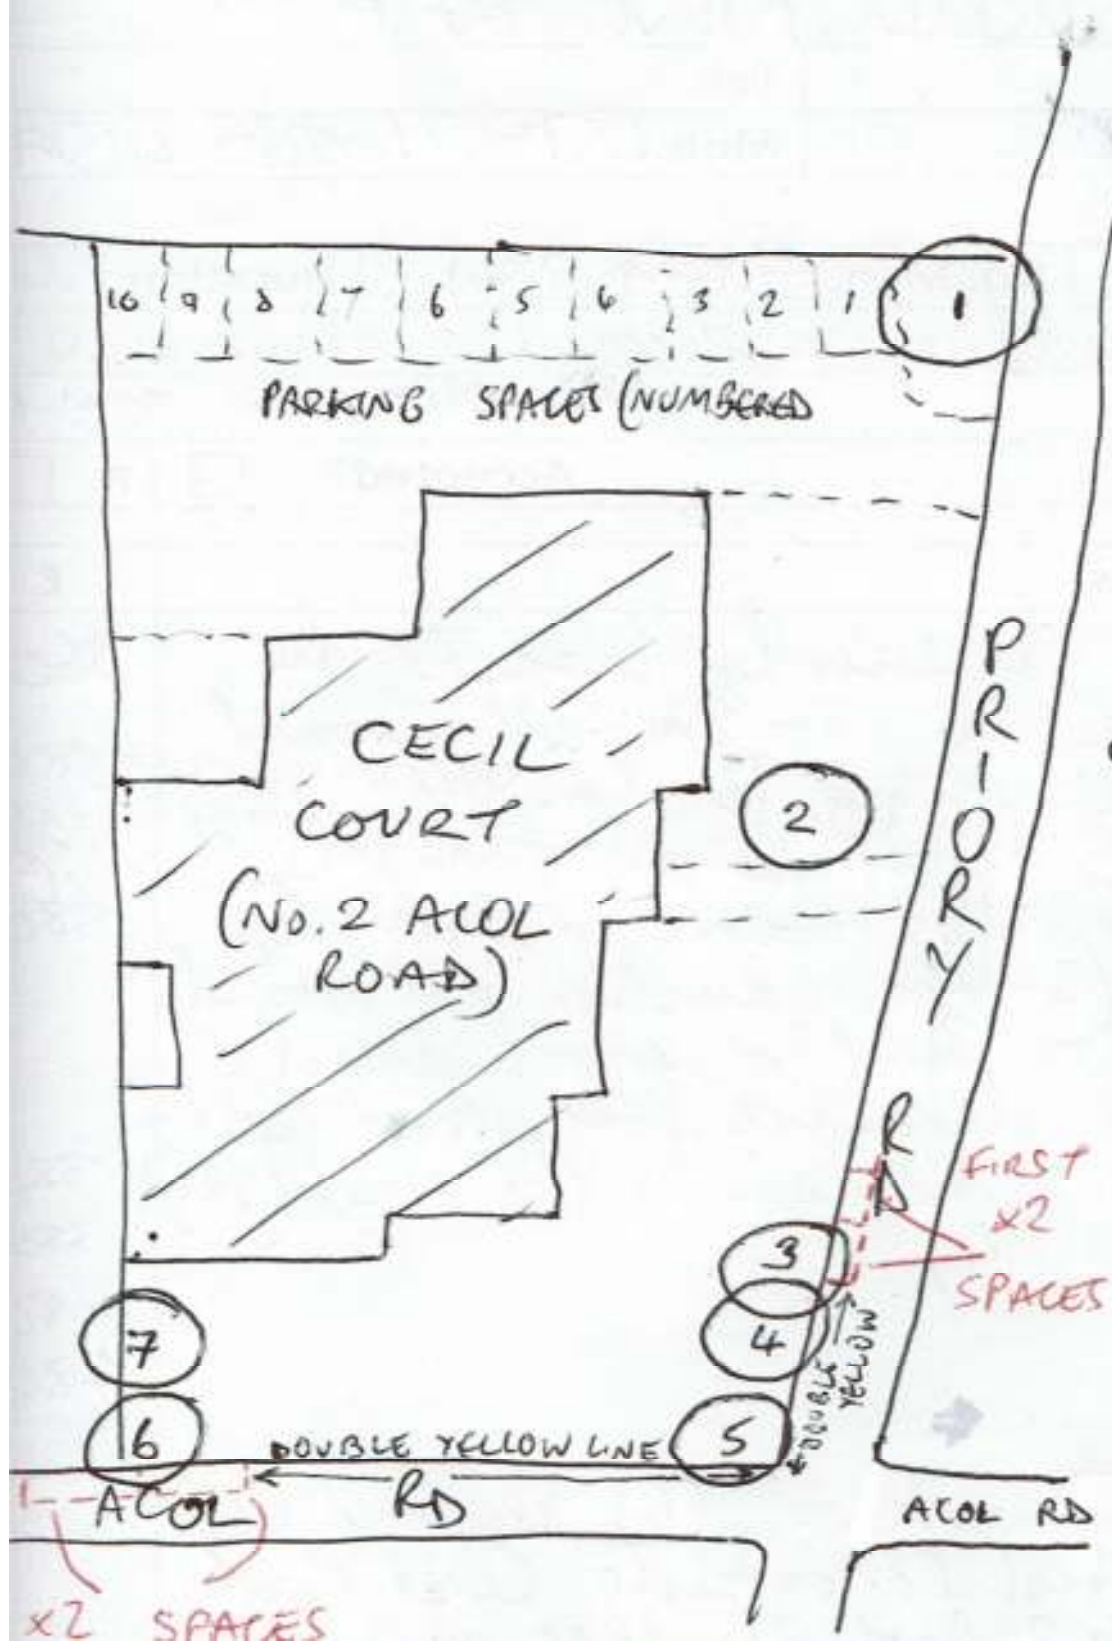 10 9 8 7 6 5 4 3 2 1 1
PARKING SPACES (NUMBERED
PRIORY RD
CECIL
COURT
(No. 2 ACOL
ROAD)
2
FIRST
x2
SPACES
3
4
DOUBLE
YELLOW
7
6
DOUBLE YELLOW LINE
5
ACOL RD
ACOL RD
x2 SPACES